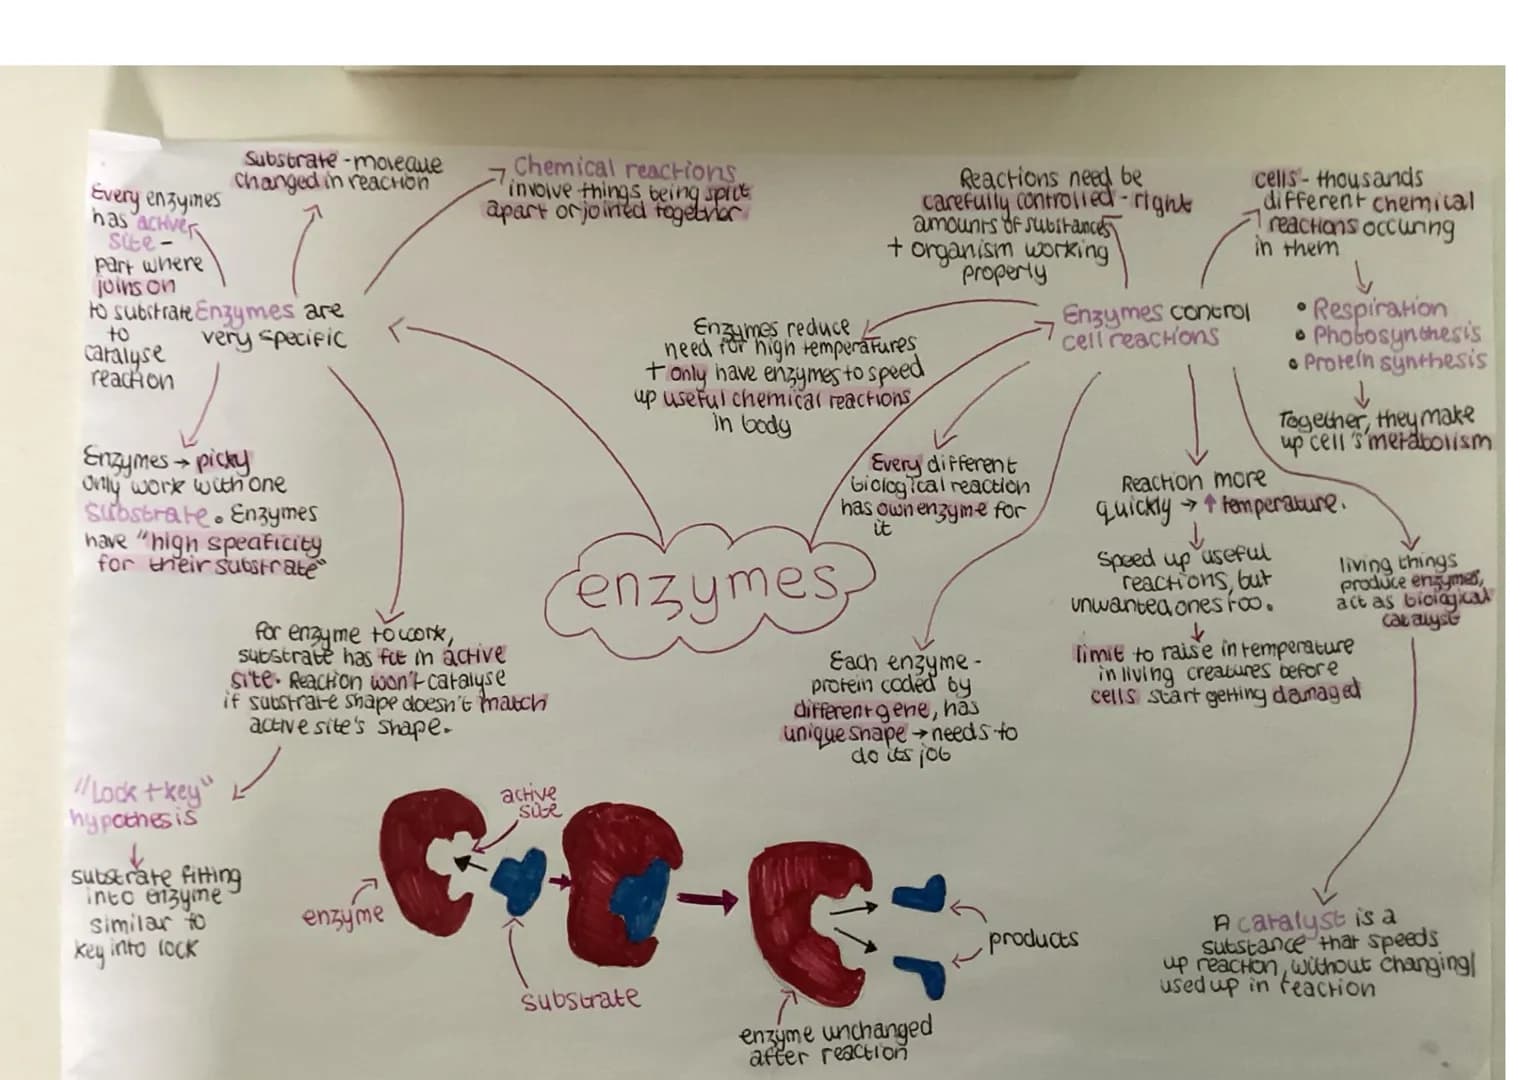 Substrate - moleque
changed in reaction
Chemical reactions
involve things being split
apart or joined together.
Every enzymes
has active
site -
part where
joins on
to substrate
to
catalyse
reaction
Enzymes are
very specific
Enzymes → picky
only work with one
substrate. Enzymes
have "high specificity
for their substrate"
for enzyme to work,
substrate has fit in active
site. Reaction won't catalyse
if substrate shape doesn't match
active site's shape.
"Lock + key"
hypothesis
substrate fitting
into enzyme
similar to
key into lock
enzymes
Reactions need be
carefully controlled - right
amounts of substances
+ organism working
properly
cells - thousands
different chemical
reactions occuring
in them
• Respiration
• Photosynthesis
• Protein synthesis
Together, they make
up cell's metabolism
Enzymes control
cell reactions
Enzymes reduce
need for high temperatures
+ only have enzymes to speed
up useful chemical reactions
in body
Every different
biological reaction
has own enzyme for
it
Each enzyme -
protein coded by
different gene, has
unique shape → needs to
do its job
Reaction more
quickly → ↑ temperature.
Speed up useful
reactions, but
unwanted ones too.
limit to raise in temperature
in living creatures before
cells start getting damaged
living things
produce enzymes,
act as biological
catalyst
A catalyst is a
substance that speeds
up reaction, without changing/
used up in reaction
active
site
enzyme
substrate
products
enzyme unchanged
after reaction